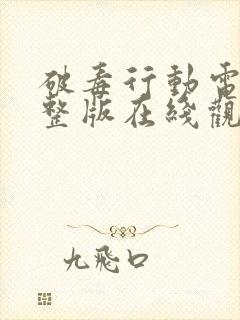 破毒行動電
整版在綫觀
九飛口